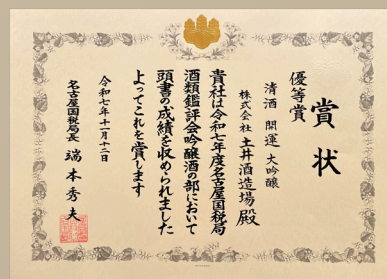 賞状
優等賞
清酒 開運 大吟醸
株式会社 土井酒造場殿
貴社は令和七年度名古屋国税局
酒類鑑評会吟醸酒の部において
頭書の成績を収められました
よってこれを賞します
令和七年十一月十二日
名古屋国税局長 端本秀夫